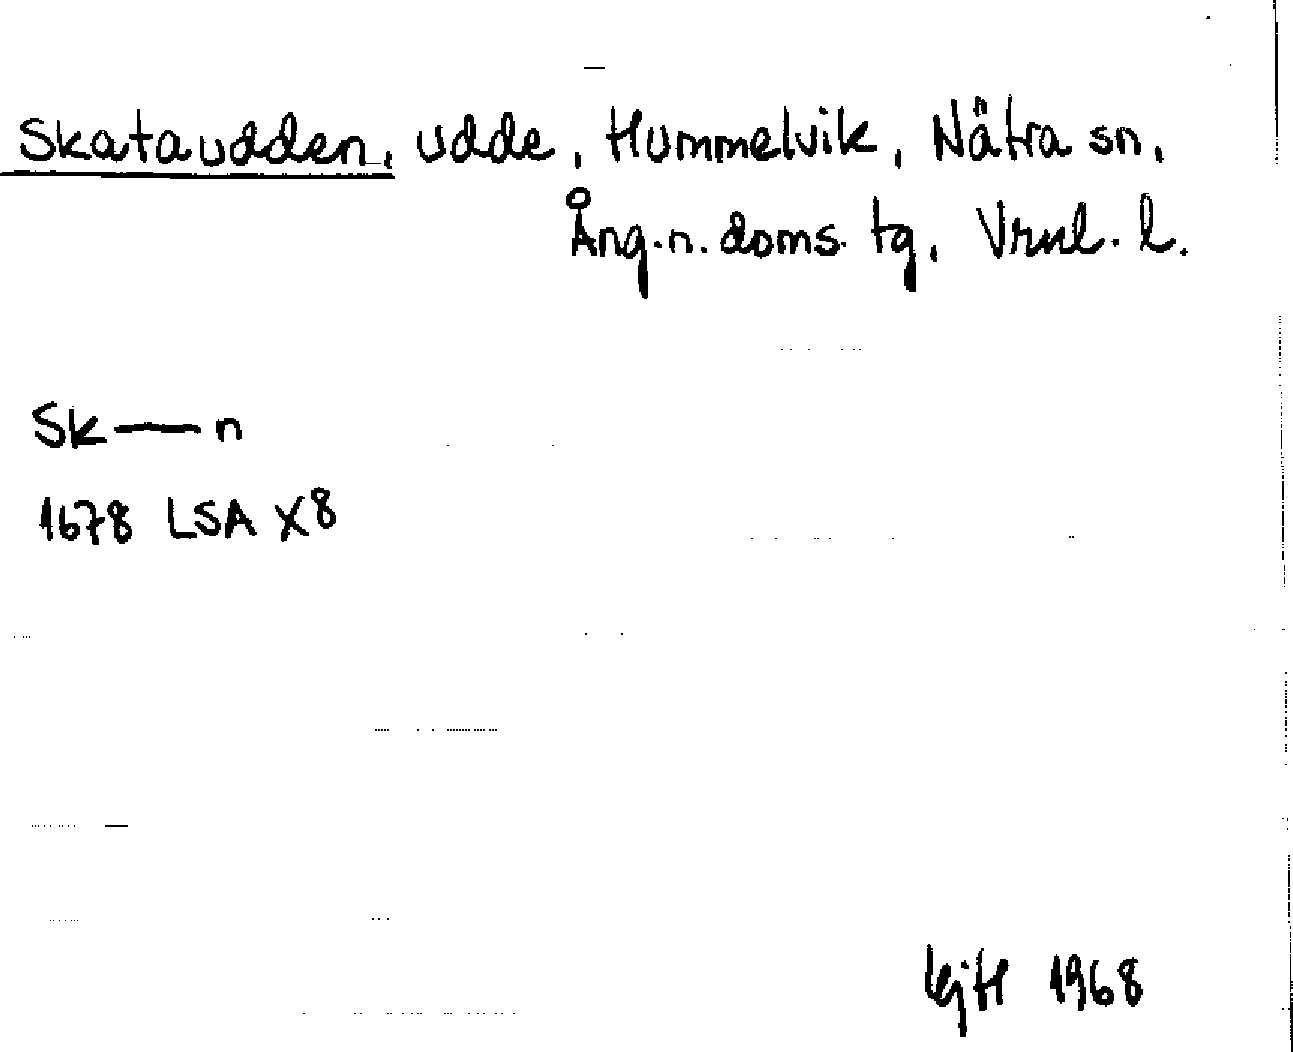 Skataudden, udde, Hummelvik, Nätra sn,
Ång.n. doms. tg, Vrnl. l.
Sk——n
1678 LSA X8
1968